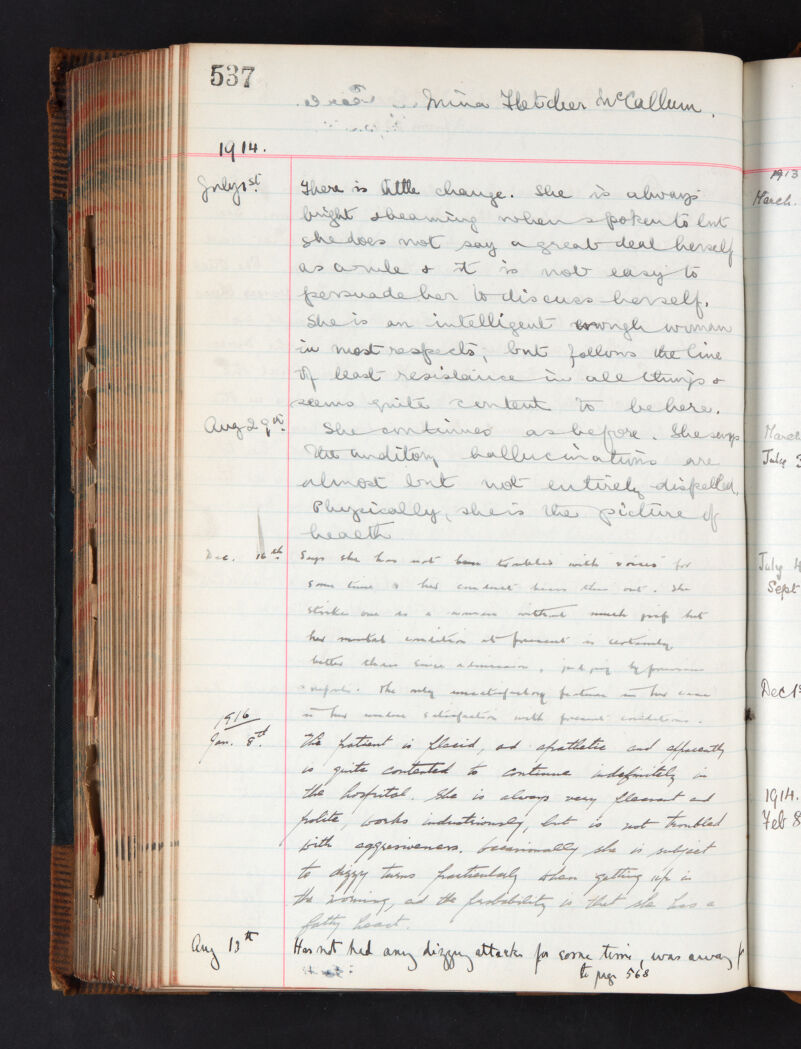 537
Mina Fletcher McCallum.
1914.
July 1st. There is little change. She is always
bright & beaming when spoken to but
she does not say a great deal herself
as a rule & it is not easy to
persuade her to discuss herself.
She is an intelligent enough woman
in most respects, but follows the line
of least resistance in all things &
seems quite content to be here.
Aug 29th. She continues as before. She says
the auditory hallucinations are
almost but not entirely dispelled.
Physically, she is the picture of
health
Dec. 16th. Says she has not been troubled with voices for
some time & her conduct bears this out. She
strikes one as a woman without much grip but
her mental condition at present is certainly
better than since admission, judging by previous
reports. The only unsatisfactory feature in her case
is her undue satisfaction with present conditions.
1916
Jan. 8th. The patient is placid, and apathetic and apparently
is quite contented to continue indefinitely in
the hospital. She is always very pleasant and
polite, works industriously, but is not troubled
with aggressiveness. Occasionally she is subject
to dizzy turns particularly when getting up in
the morning, and the probability is that she has a
fatty heart.
Aug 13th Has not had any dizzy attacks for some time, was away f
to page 568
1913
March.
March
July
July 4
Sept
Dec 1s
1914.
Feb 8